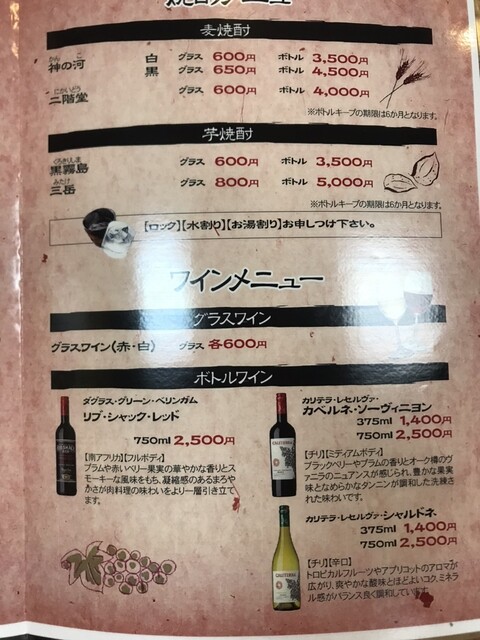 麦焼酎
かん こ
神の河 白 グラス 600円 ボトル 3,500円
黒 グラス 650円 ボトル 4,500円
にかいどう
二階堂 グラス 600円 ボトル 4,000円
※ボトルキープの期限は6か月となります。
芋焼酎
くろきりしま
黒霧島 グラス 600円 ボトル 3,500円
みたけ
三岳 グラス 800円 ボトル 5,000円
※ボトルキープの期限は6か月となります。
【ロック】【水割り】【お湯割り】お申しつけ下さい。
ワインメニュー
グラスワイン
グラスワイン(赤・白) グラス 各600円
ボトルワイン
ダグラス・グリーン・ベリンガム
リブ・シャック・レッド
750ml 2,500円
【南アフリカ】【フルボディ】
プラムや赤いベリー果実の華やかな香りとス
モーキーな風味をもち、凝縮感のあるまろや
かさが肉料理の味わいをより一層引き立て
ます。
カリテラ・レセルヴァ・
カベルネ・ソーヴィニヨン
375ml 1,400円
750ml 2,500円
【チリ】【ミディアムボディ】
ブラックベリーやプラムの香りとオーク樽のヴ
ァニラのニュアンスが感じられ、豊かな果実
味となめらかなタンニンが調和した洗練さ
れた味わいです。
カリテラ・レセルヴァ・シャルドネ
375ml 1,400円
750ml 2,500円
【チリ】【辛口】
トロピカルフルーツやアプリコットのアロマが
広がり、爽やかな酸味とほどよいコク、ミネラ
ル感がバランス良く調和しています。